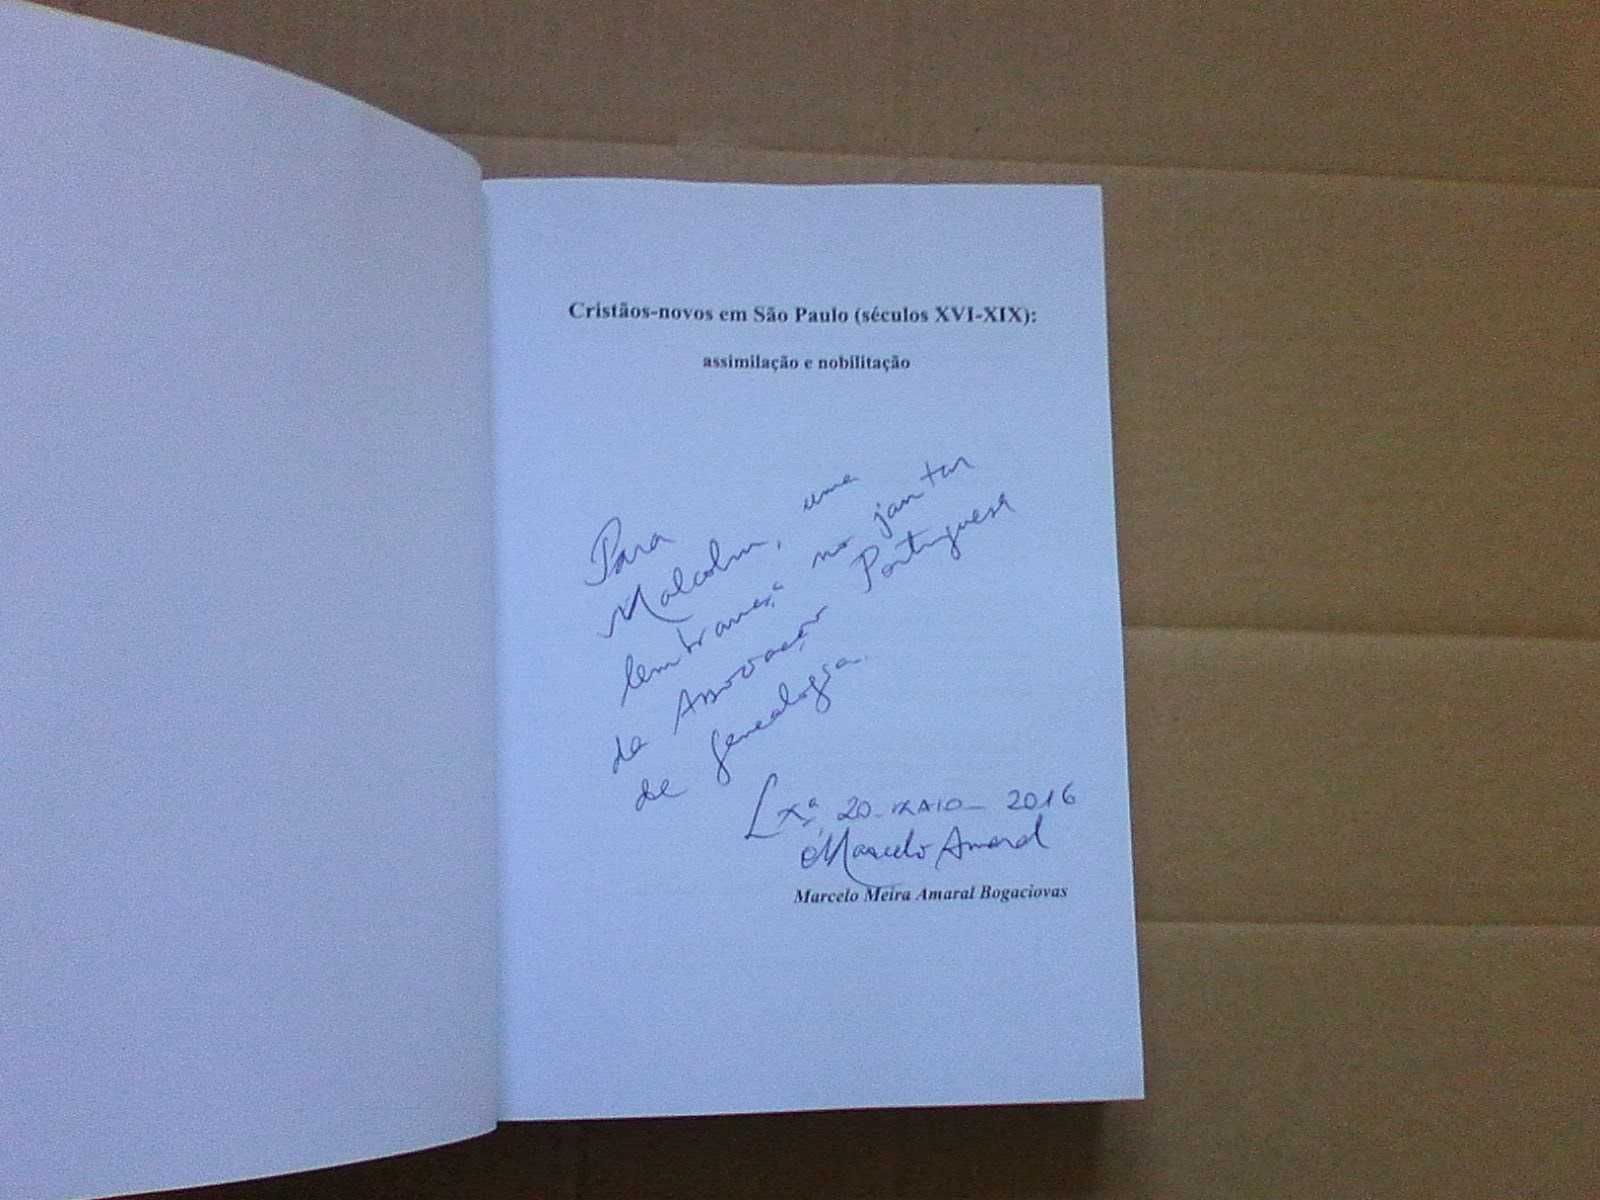 Cristãos-novos em São Paulo (séculos XVI-XIX):
assimilação e nobilitação
Para
Malcolm, uma
lembrança no jantar
da Associação Portuguesa
de genealogia.
Lxª, 20-MAIO-2016
Marcelo Amaral
Marcelo Meira Amaral Bogaciovas